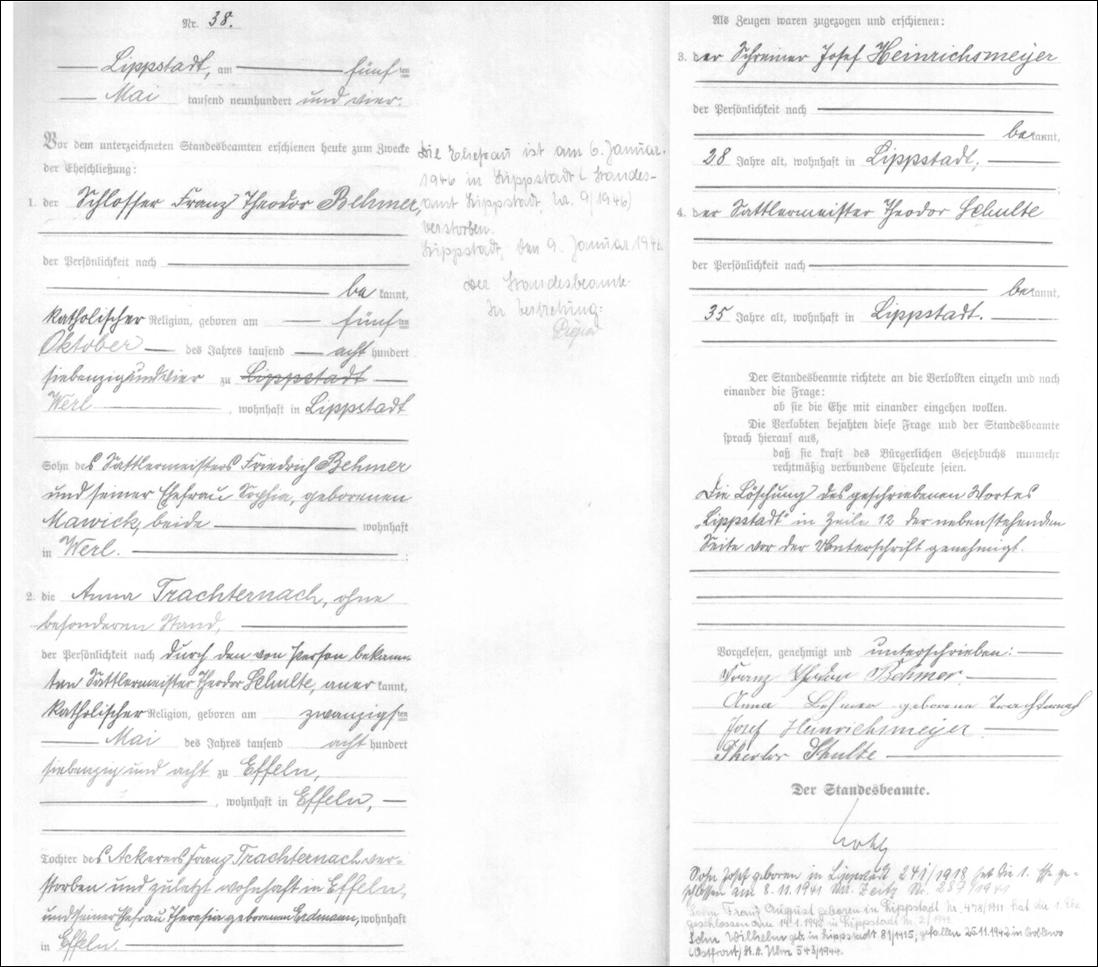 Nr. 38.
Lippstadt, am fünften
Mai tausend neunhundert und vier.
Vor dem unterzeichneten Standesbeamten erschienen heute zum Zwecke
der Eheschließung:
1. der Schlosser Franz Theodor Behmer,
der Persönlichkeit nach
be kannt,
katholischer Religion, geboren am fünften
Oktober des Jahres tausend acht hundert
siebenzig und vier zu Lippstadt
Werl, wohnhaft in Lippstadt
Sohn des Sattlermeisters Friedrich Behmer
und seiner Ehefrau Sophia, geborenen
Mawick, beide wohnhaft
in Werl.
2. die Anna Trachternach, ohne
besonderen Stand,
der Persönlichkeit nach durch den von Person bekann-
ten Sattlermeister Theodor Schulte, aner kannt,
katholischer Religion, geboren am zwanzigsten
Mai des Jahres tausend acht hundert
siebenzig und acht zu Effeln,
, wohnhaft in Effeln,
Tochter des Ackerers Franz Trachternach ver-
storben und zuletzt wohnhaft in Effeln,
und seiner Ehefrau Theresia geborenen Erdmann, wohnhaft
in Effeln.
Die Ehefrau ist am 6. Januar
1946 in Lippstadt (Standes-
amt Lippstadt, Nr. 9/1946)
verstorben.
Lippstadt, den 9. Januar 1946
Der Standesbeamte
In Vertretung:
Als Zeugen waren zugezogen und erschienen:
3. der Schreiner Josef Heinrichsmeyer
der Persönlichkeit nach
bekannt,
28 Jahre alt, wohnhaft in Lippstadt,
4. der Sattlermeister Theodor Schulte
der Persönlichkeit nach
bekannt,
35 Jahre alt, wohnhaft in Lippstadt.
Der Standesbeamte richtete an die Verlobten einzeln und nach
einander die Frage:
ob sie die Ehe mit einander eingehen wollen.
Die Verlobten bejahten diese Frage und der Standesbeamte
sprach hierauf aus,
daß sie kraft des Bürgerlichen Gesetzbuchs nunmehr
rechtmäßig verbundene Eheleute seien.
Die Löschung des geschriebenen Wortes
„Lippstadt" in Zeile 12 der nebenstehenden
Seite vor der Unterschrift genehmigt.
Vorgelesen, genehmigt und unterschrieben:
Franz Theodor Behmer
Anna Behmer geborene Trachternach
Josef Heinrichsmeyer
Theodor Schulte
Der Standesbeamte.
Sohn Josef geboren in Lippstadt 241/1918 hat die 1. Ehe ge-
schlossen am 8.11.1941 in Zeitz Nr. 287/1941
Sohn Franz August geboren in Lippstadt Nr. 478/1911 hat die 1. Ehe
geschlossen am 14.1.1942 in Lippstadt Nr. 2/1942
Sohn Wilhelm geb. in Lippstadt 81/1915, gefallen 25.11.1942 in
(Ostfront) St. A. Ulm 543/1944.